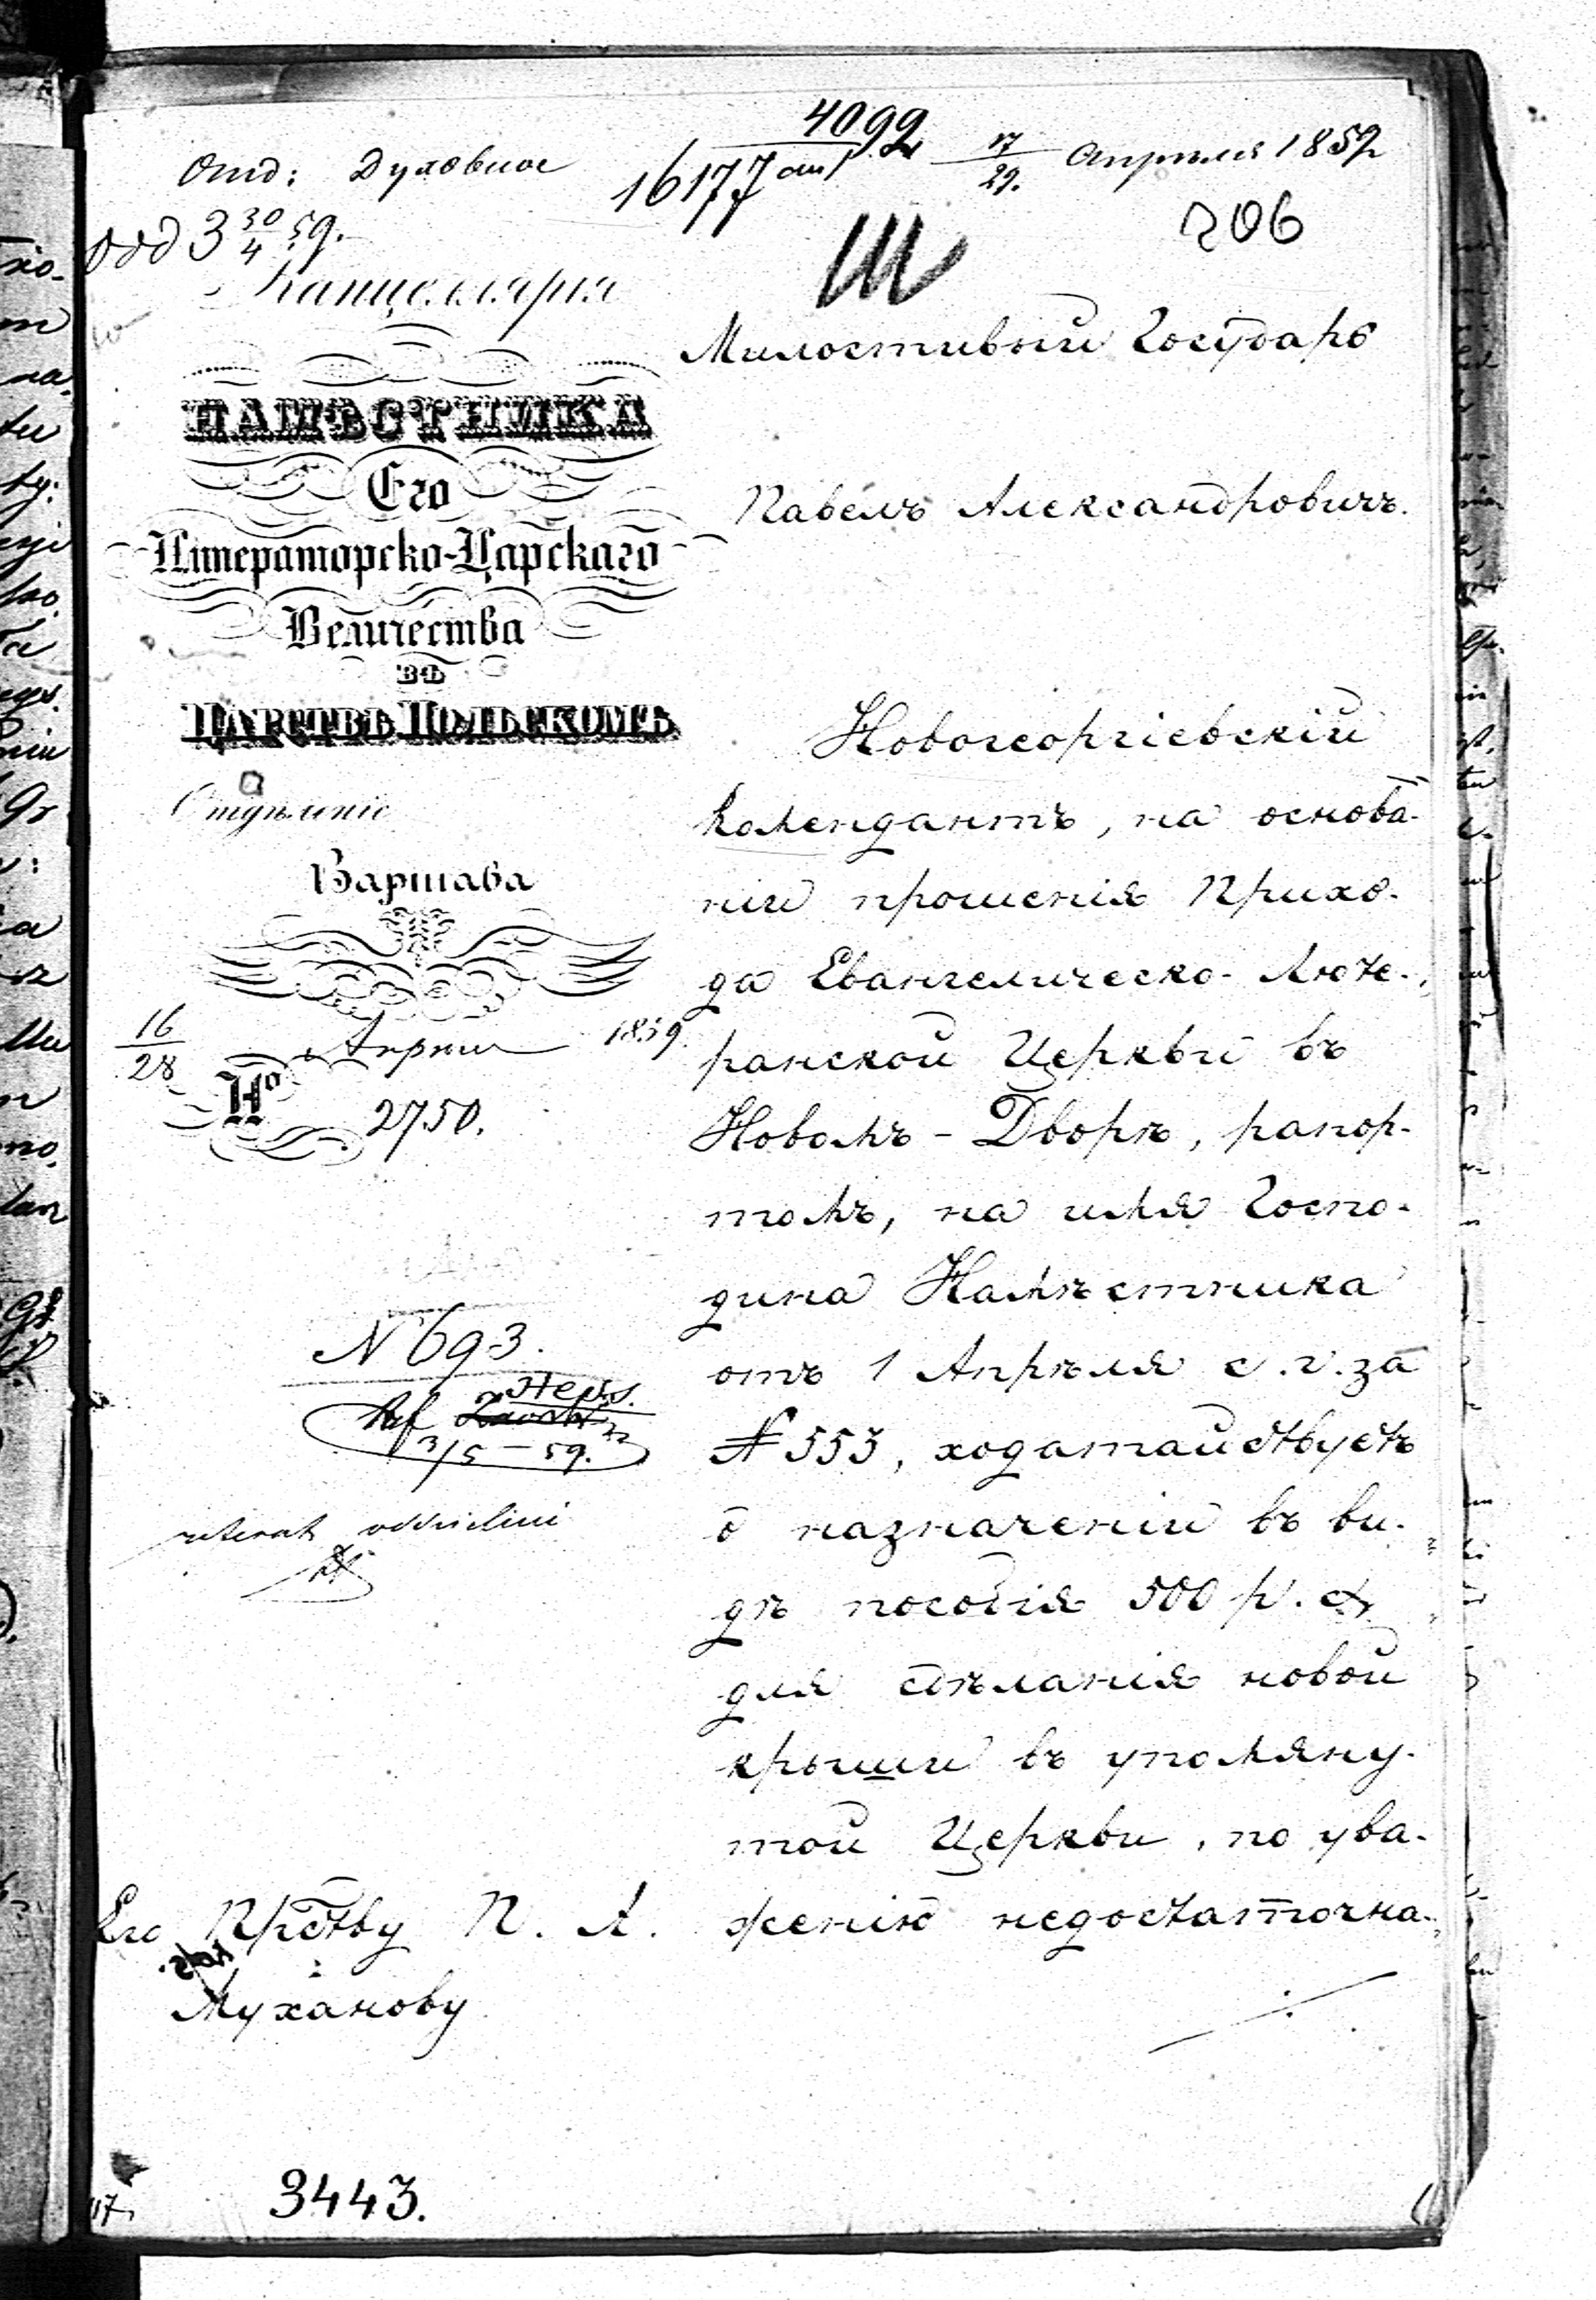 4092
Отд: Духовное 16177 17/29. Апрѣля 1859
odd 3 30/4 59.
206
III
Канцелярія
НАМѢСТНИКА
Его
Императорско-Царскаго
Величества
въ
ЦАРСТВѢ ПОЛЬСКОМЪ
Отдѣленіе
Варшава
16/28 Апрѣля 1859
No 2750.
Милостивый Государь
Павелъ Александровичъ.
Новогеоргіевскій
Комендантъ, на основа-
ніи прошенія Прихо-
да Евангелическо-Люте-
ранской Церкви въ
Новомъ-Дворѣ, рапор-
томъ, на имя Госпо-
дина Намѣстника
отъ 1 Апрѣля с. г. за
№ 553, ходатайствуетъ
о назначеніи въ ви-
дѣ пособія 500 р. с.
для сдѣланія новой
крыши въ упомяну-
той Церкви, по ува-
женію недостаточна-
N 693.
3/5 – 59.
Его Прству П. А.
Муханову
3443.